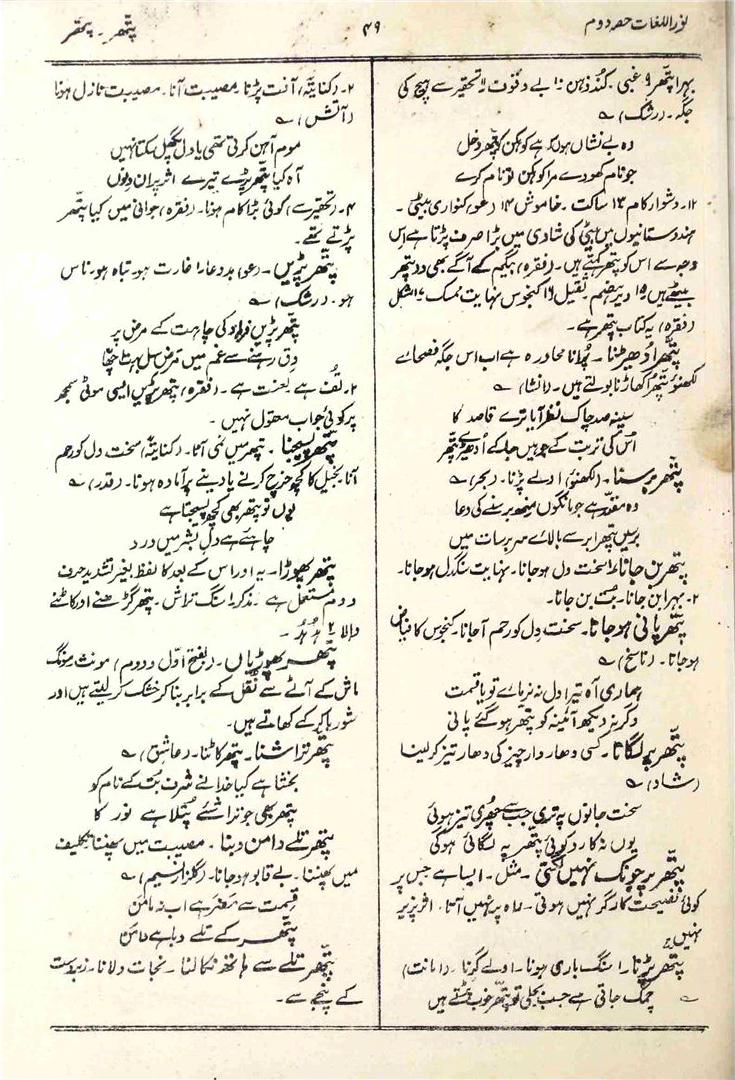 نور اللغات حصہ دوم
۴۹
پتھر ۔ پتھر
بہرا پتھر ۹ غبی ۔ کُند ذہن ۱۰ بے وقوف ۱۱ تحقیر سے ہیچ کی
جگہ ۔ (رشک) ؎
وہ بے نشاں ہوں کہ ہے کوہکن کو پتھر دخل
جو نام کھودے مرا کوہکن تو نام کرے
۱۲۔ دشوار کام ۱۳ ساکت ۔ خاموش ۱۴ (عو) کنواری بیٹی ۔
ہندوستانیوں میں بیٹی کی شادی میں بڑا صرف پڑتا ہے اس
وجہ سے اس کو پتھر کہتے ہیں ۔ (فقرہ) بیگم کے آگے بھی دو پتھر
بیٹھے ہیں ۱۵ دیر ہضم ۔ ثقیل ۱۶ کنجوس نہایت ممسک ۱۷ مشکل
(فقرہ) یہ کتاب پتھر ہے ۔
پتھر اُدھیڑنا ۔ پُرانا محاورہ ہے اب اس جگہ فصحائے
لکھنؤ پتھر اُکھاڑنا بولتے ہیں ۔ (انشا) ؎
سینہ صد چاک نظر آیا ترے قاصد کا
اُس کی تربت کے جو ہیں جا کے اُدھیڑے پتھر
پتھر برسنا ۔ (لکھنؤ) اولے پڑنا ۔ (بحر) ؎
وہ مقدر ہے جو مانگوں مینھ برسنے کی دعا
برسیں پتھر ابر سے بالائے سر برسات میں
پتھر بن جانا ۱ سخت دل ہو جانا ۔ نہایت سنگدل ہو جانا ۔
۲۔ بہرا بن جانا ۔ بت بن جانا ۔
پتھر پانی ہو جانا ۔ سخت دل کو رحم آجانا ۔ کنجوس کا فیاض
ہو جانا ۔ (ناسخ) ؎
ہماری آہ تیرا دل نہ نرمائے تو یا قسمت
وگرنہ دیکھ آئینہ کو پتھر ہو گئے پانی
پتھر پر لگانا ۔ کسی دھار دار چیز کی دھار تیز کر لینا
(شاد) ؎
سخت جانوں پہ تری جب سے چھری تیز ہوئی
یوں نہ کارد کوئی پتھر پہ لگائی ہوگی
پتھر پر چونک نہیں لگتی ۔ مثل ۔ ایسا ہے جس پر
کوئی نصیحت کارگر نہیں ہوتی ۔ راہ پر نہیں آتا ۔ اثر پزیر
نہیں
پتھر پڑنا ۱ سنگ باری ہونا ۔ اولے گرنا ۔ (امانت)
؎ چمک جاتی ہے جب بجلی تو پتھر خوب پڑتے ہیں
۲۔ (کنایۃً) آفت پڑنا ۔ مصیبت آنا ۔ مصیبت نازل ہونا
(آتش) ؎
موم آہن کرتی تھی یا دل پگھل سکتا نہیں
آہ کیا پتھر پڑے تیرے اثر پر ان دنوں
۴۔ (تحقیر سے) کوئی بڑا کام ہونا ۔ (فقرہ) جوانی میں کیا پتھر
پڑتے تھے ۔
پتھر پڑیں ۔ (عو) بد دعا ۱ غارت ہو ۔ تباہ ہو ناس
ہو ۔ (رشک) ؎
پتھر پڑیں فولاد کی چاہت کے مرض پر
دق رہنے سے غم میں مرض سل بہتا چھا
۲۔ تف ہے ۔ لعنت ہے ۔ (فقرہ) پتھر پڑیں ایسی موٹی سمجھ
پر کوئی جواب معقول نہیں ۔
پتھر پسیجنا ۔ پتھر میں نمی آنا ۔ (کنایۃً) سخت دل کو رحم
آنا ۔ بخیل کا کچھ خرچ کرنے یا دینے پر آمادہ ہونا ۔ (قدر) ؎
یوں تو پتھر بھی کچھ پسیجتا ہے
چاہئے ہے دل بشر میں درد
پتھر پھوڑا ۔ یہ اور اس کے بعد کا لفظ بغیر تشدید حرف
دوم مستعمل ہے ۔ مذکر ۱ سنگ تراش ۔ پتھر گڑھنے اور کاٹنے
والا ۲ ہُد ہُد ۔
پتھر پھوڑیاں ۔ (بفتح اوّل و دوم) مونث مونگ
ماش کے آٹے سے نُقل کے برابر بنا کر خشک کر لیتے ہیں اور
شوربا کر کے کھاتے ہیں ۔
پتھر تراشنا ۔ پتھر کاٹنا ۔ (عاشق) ؎
بخشا ہے کیا خدا نے شرف بت کے نام کو
پتھر بھی جو تراشئے پتلا ہے نور کا
پتھر تلے دامن دبنا ۔ مصیبت میں پھنسنا ۔ تکلیف
میں پھنسنا ۔ بے قابو ہو جانا ۔ (گلزار نسیم) ؎
قسمت سے مفر ہے اب نہ مامن
پتھر کے تلے دبا ہے دامن
پتھر تلے سے ہاتھ نکالنا ۔ نجات دلانا ۔ زبردست
کے پنجے سے ۔